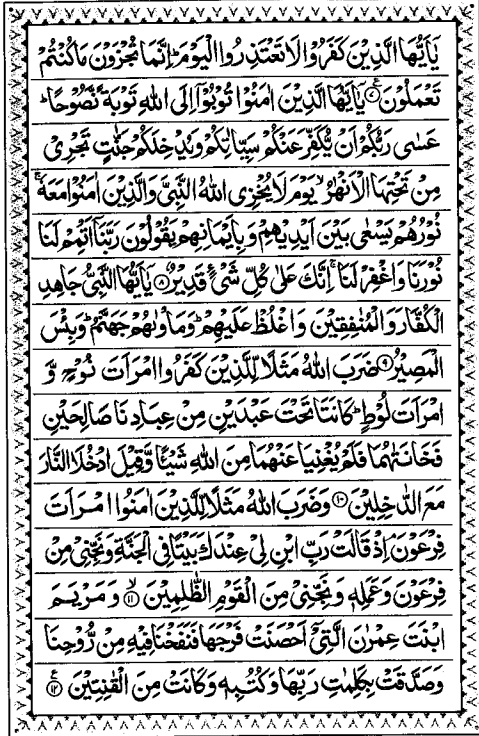 يَٰٓأَيُّهَا الَّذِينَ كَفَرُوا لَا تَعْتَذِرُوا الْيَوْمَ ؕ إِنَّمَا تُجْزَوْنَ مَا كُنتُمْ
تَعْمَلُونَ ۝۷ يَٰٓأَيُّهَا الَّذِينَ اٰمَنُوا تُوبُوٓا إِلَى اللّٰهِ تَوْبَةً نَّصُوحًا ؕ
عَسٰى رَبُّكُمْ أَنْ يُّكَفِّرَ عَنْكُمْ سَيِّاٰتِكُمْ وَيُدْخِلَكُمْ جَنّٰتٍ تَجْرِيْ
مِنْ تَحْتِهَا الْاَنْهٰرُ ۙ يَوْمَ لَا يُخْزِى اللّٰهُ النَّبِيَّ وَالَّذِيْنَ اٰمَنُوْا مَعَهٗ ۚ
نُوْرُهُمْ يَسْعٰى بَيْنَ اَيْدِيْهِمْ وَبِاَيْمَانِهِمْ يَقُوْلُوْنَ رَبَّنَآ اَتْمِمْ لَنَا
نُوْرَنَا وَاغْفِرْ لَنَا ۚ اِنَّكَ عَلٰى كُلِّ شَيْءٍ قَدِيْرٌ ۝۸ يٰٓاَيُّهَا النَّبِيُّ جَاهِدِ
الْكُفَّارَ وَالْمُنٰفِقِيْنَ وَاغْلُظْ عَلَيْهِمْ ؕ وَمَاْوٰىهُمْ جَهَنَّمُ ؕ وَبِئْسَ
الْمَصِيْرُ ۝۹ ضَرَبَ اللّٰهُ مَثَلًا لِّلَّذِيْنَ كَفَرُوا امْرَاَتَ نُوْحٍ وَّ
امْرَاَتَ لُوْطٍ ؕ كَانَتَا تَحْتَ عَبْدَيْنِ مِنْ عِبَادِنَا صَالِحَيْنِ
فَخَانَتٰهُمَا فَلَمْ يُغْنِيَا عَنْهُمَا مِنَ اللّٰهِ شَيْـًٔا وَّقِيْلَ ادْخُلَا النَّارَ
مَعَ الدّٰخِلِيْنَ ۝۱۰ وَضَرَبَ اللّٰهُ مَثَلًا لِّلَّذِيْنَ اٰمَنُوا امْرَاَتَ
فِرْعَوْنَ ۘ اِذْ قَالَتْ رَبِّ ابْنِ لِيْ عِنْدَكَ بَيْتًا فِى الْجَنَّةِ وَنَجِّنِيْ مِنْ
فِرْعَوْنَ وَعَمَلِهٖ وَنَجِّنِيْ مِنَ الْقَوْمِ الظّٰلِمِيْنَ ۙ ۝۱۱ وَمَرْيَمَ
ابْنَتَ عِمْرٰنَ الَّتِيْٓ اَحْصَنَتْ فَرْجَهَا فَنَفَخْنَا فِيْهِ مِنْ رُّوْحِنَا
وَصَدَّقَتْ بِكَلِمٰتِ رَبِّهَا وَكُتُبِهٖ وَكَانَتْ مِنَ الْقٰنِتِيْنَ ۝۱۲ ع